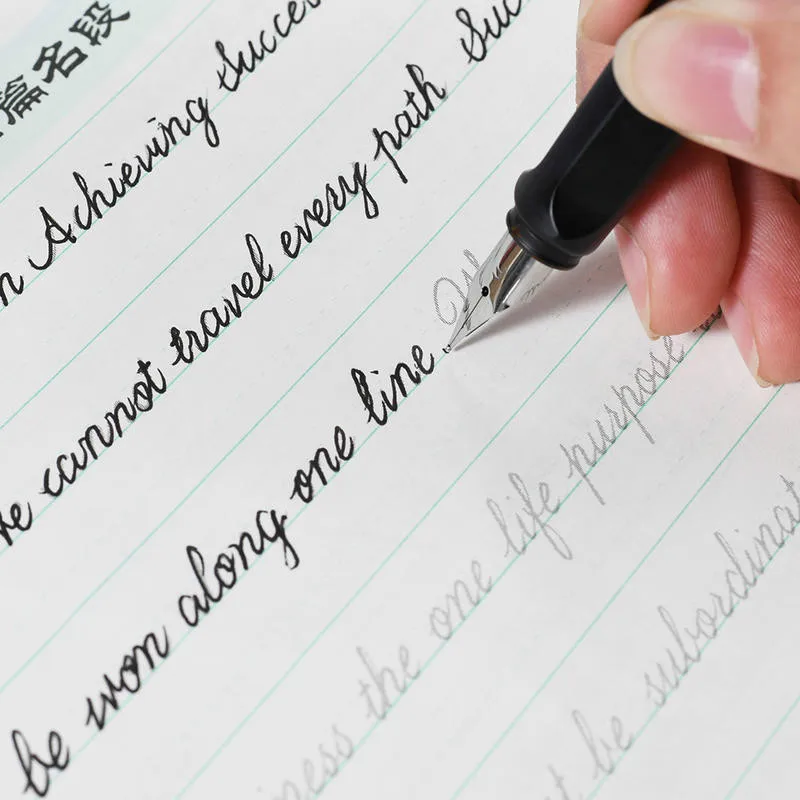 篇名段
n Achieving Succes
e cannot travel every path Suc
be won along one line
ness the one life purpose
t be subordinat